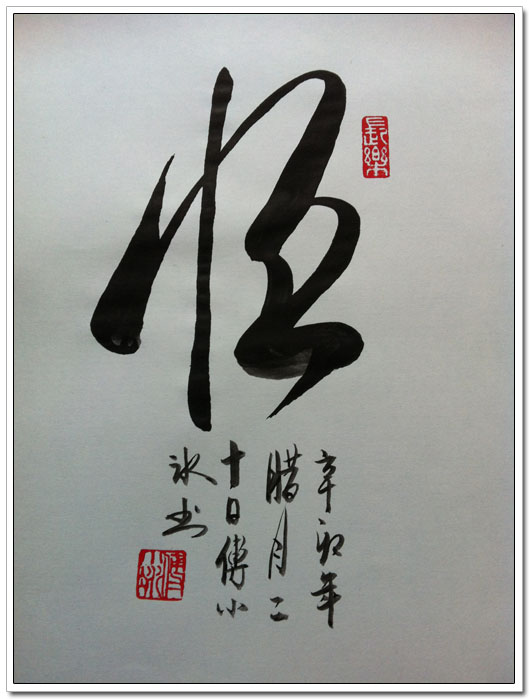 恒
長樂
辛卯年
腊月二
十日傅小
冰书